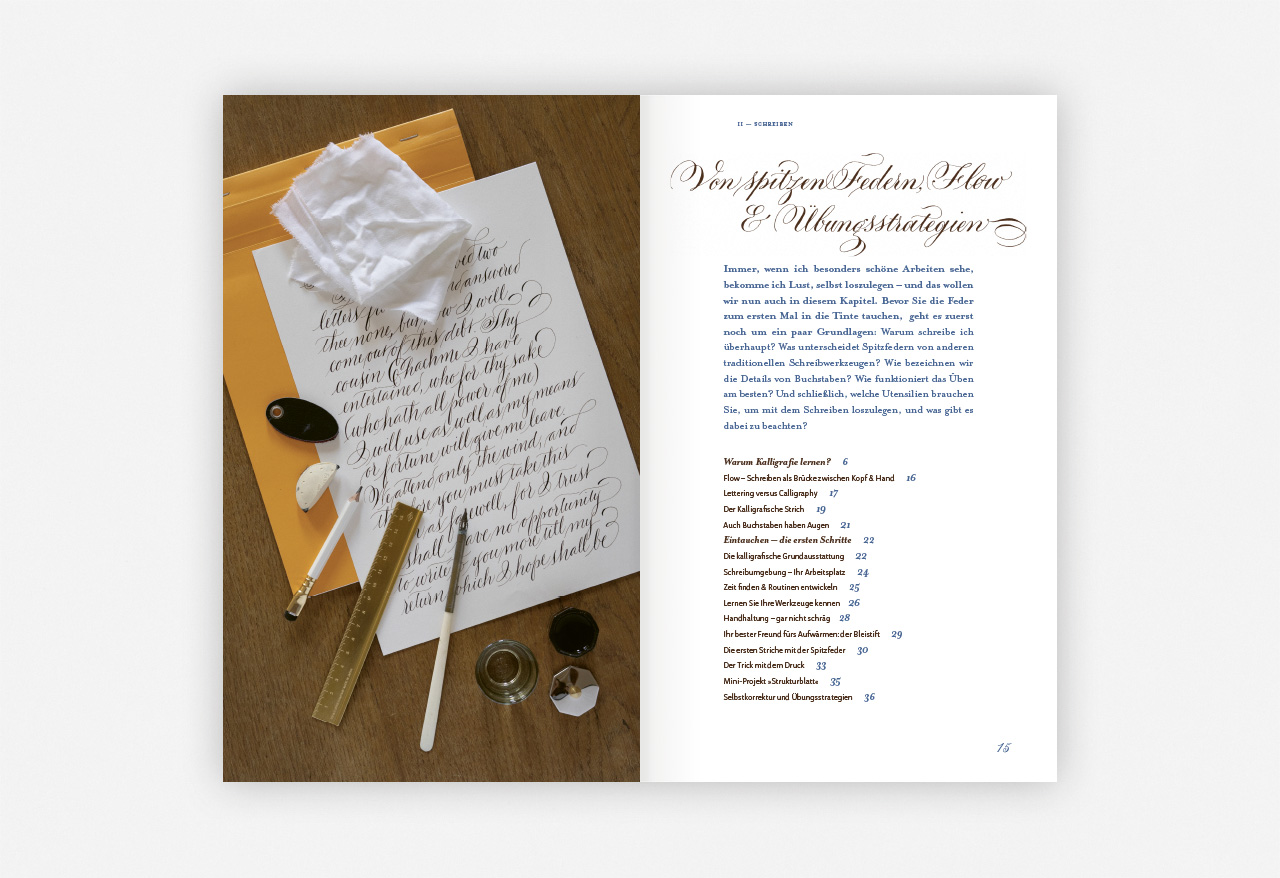 oved two
nd answered
letters
thee none, but now I will
come out of this debt. Thy
cousin Chachme I have
entertained, who for thy sake
(who hath all power of me)
I will use as well as my means
or fortune will give me leave.
We attend only the wind, and
you must take this
as well, for I trust
shall have no opportunity
to write you more till my
return which I hope shall be
II — SCHREIBEN
Von spitzen Federn, Flow
& Übungsstrategien
Immer, wenn ich besonders schöne Arbeiten sehe,
bekomme ich Lust, selbst loszulegen – und das wollen
wir nun auch in diesem Kapitel. Bevor Sie die Feder
zum ersten Mal in die Tinte tauchen, geht es zuerst
noch um ein paar Grundlagen: Warum schreibe ich
überhaupt? Was unterscheidet Spitzfedern von anderen
traditionellen Schreibwerkzeugen? Wie bezeichnen wir
die Details von Buchstaben? Wie funktioniert das Üben
am besten? Und schließlich, welche Utensilien brauchen
Sie, um mit dem Schreiben loszulegen, und was gibt es
dabei zu beachten?
Warum Kalligrafie lernen? 6
Flow – Schreiben als Brücke zwischen Kopf & Hand 16
Lettering versus Calligraphy 17
Der Kalligrafische Strich 19
Auch Buchstaben haben Augen 21
Eintauchen – die ersten Schritte 22
Die kalligrafische Grundausstattung 22
Schreibumgebung – Ihr Arbeitsplatz 24
Zeit finden & Routinen entwickeln 25
Lernen Sie Ihre Werkzeuge kennen 26
Handhaltung – gar nicht schräg 28
Ihr bester Freund fürs Aufwärmen: der Bleistift 29
Die ersten Striche mit der Spitzfeder 30
Der Trick mit dem Druck 33
Mini-Projekt »Strukturblatt« 35
Selbstkorrektur und Übungsstrategien 36
15